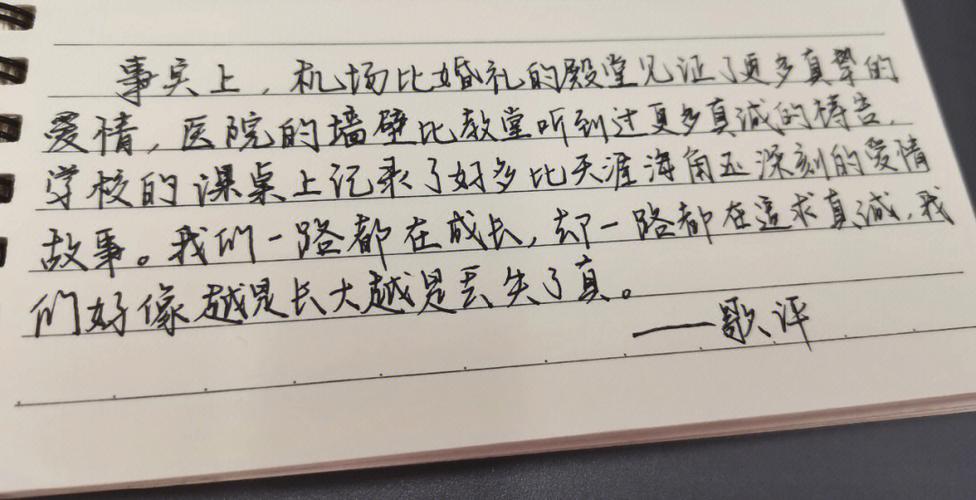 事实上，机场比婚礼的殿堂见证了更多真挚的
爱情，医院的墙壁比教堂听到过更多真诚的祷告，
学校的课桌上记录了好多比天涯海角还深刻的爱情
故事。我们一路都在成长，却一路都在追求真诚，我
们好像越是长大越是丢失了真。
——歌评